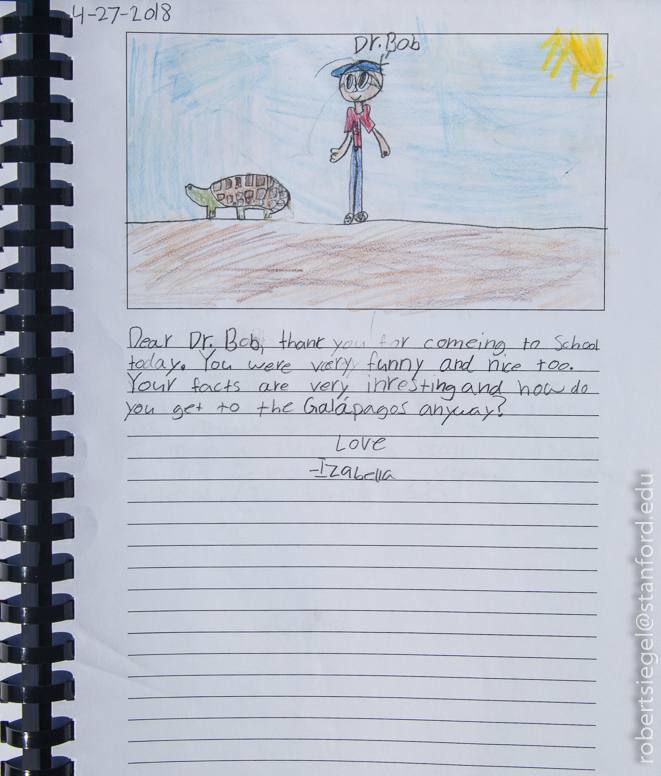 4-27-2018
Dr. Bob
Dear Dr. Bob, thank you for comeing to School
today. You were very funny and nice too.
Your facts are very inresting and how do
you get to the Galápagos anyway?
Love
-Izabella
robertsiegel@stanford.edu